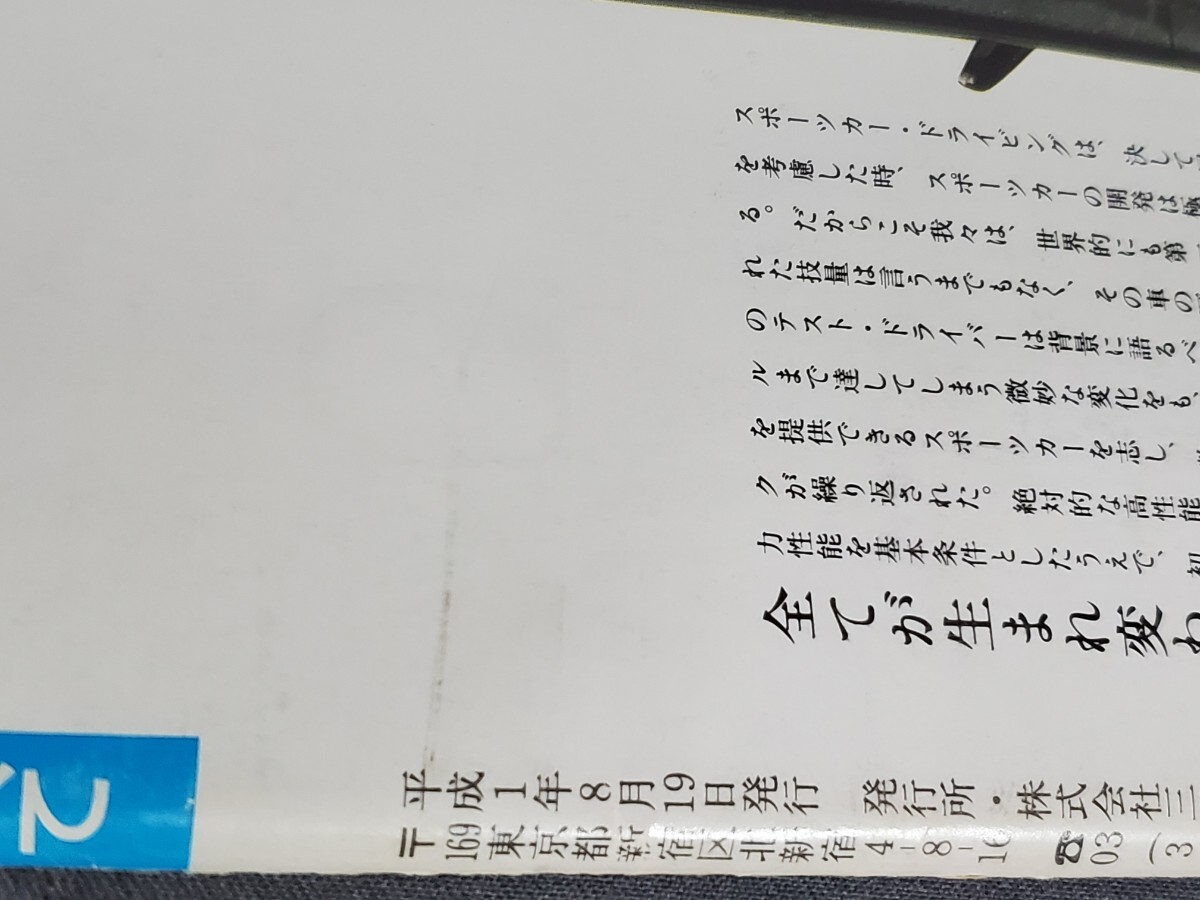 スポーツカー・ドライビングは、決して
を考慮した時、スポーツカーの開発は極
る。だからこそ我々は、世界的にも第
れた技量は言うまでもなく、その車の
のテスト・ドライバーは背景に語るべ
ルまで達してしまう微妙な変化をも、
を提供できるスポーツカーを志し、
クが繰り返された。絶対的な高性能
力性能を基本条件としたうえで、初
全てが生まれ変わ
平成1年8月19日発行 発行所・株式会社三
〒169東京都新宿区北新宿4-8-16 ☎03(3